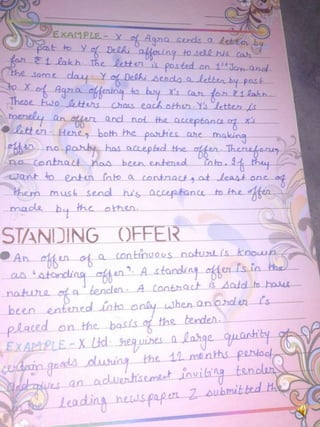 EXAMPLE - X of Agra sends a letter by
post to Y of Delhi offering to sell his car
for ₹1 lakh. The letter is posted on 1st Jan. and
the same day Y of Delhi sends a letter by post
to X of Agra offering to buy X's car for ₹1 lakh.
These two letters cross each other. Y's letter is
merely an offer and not the acceptance of X's
letter. Here, both the parties are making
offer, no party has accepted the offer. Therefore,
no contract has been entered into. If they
want to enter into a contract, at least one of
them must send his acceptance to the offer
made by the other.
STANDING OFFER
An offer of a continuous nature is known
as "standing offer". A standing offer is in the
nature of a tender. A contract is said to have
been entered into only when an order is
placed on the basis of the tender.
EXAMPLE - X Ltd. requires a large quantity of
certain goods during the 12 months period
and gives an advertisement inviting tender
leading newspaper Z submitted